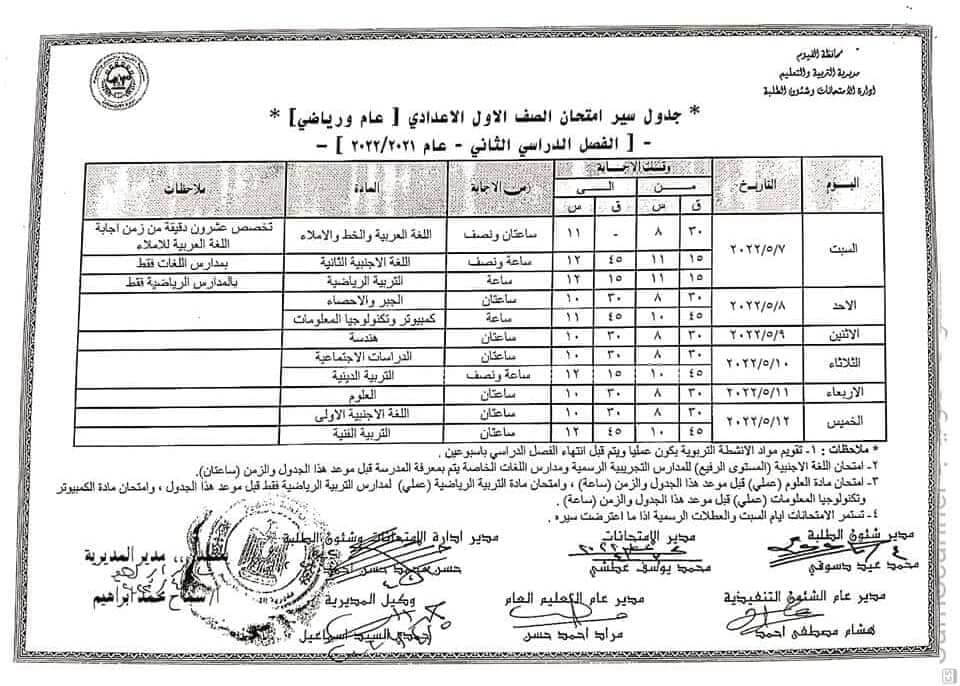 محافظة الفيوم
مديرية التربية والتعليم
ادارة الامتحانات وشئون الطلبة
* جدول سير امتحان الصف الاول الاعدادي [ عام ورياضي ] *
- [ الفصل الدراسي الثاني - عام ٢٠٢٢/٢٠٢١ ] -
اليوم التاريخ وقت الاجابة زمن الاجابة المادة ملاحظات
من الى
ق س ق س
السبت ٢٠٢٢/٥/٧ ٣٠ ٨ - ١١ ساعتان ونصف اللغة العربية والخط والاملاء تخصص عشرون دقيقة من زمن اجابة
اللغة العربية للاملاء
١٥ ١١ ٤٥ ١٢ ساعة ونصف اللغة الاجنبية الثانية بمدارس اللغات فقط
١٥ ١١ ١٥ ١٢ ساعة التربية الرياضية بالمدارس الرياضية فقط
الاحد ٢٠٢٢/٥/٨ ٣٠ ٨ ٣٠ ١٠ ساعتان الجبر والاحصاء
٤٥ ١٠ ٤٥ ١١ ساعة كمبيوتر وتكنولوجيا المعلومات
الاثنين ٢٠٢٢/٥/٩ ٣٠ ٨ ٣٠ ١٠ ساعتان هندسة
الثلاثاء ٢٠٢٢/٥/١٠ ٣٠ ٨ ٣٠ ١٠ ساعتان الدراسات الاجتماعية
٤٥ ١٠ ١٥ ١٢ ساعة ونصف التربية الدينية
الاربعاء ٢٠٢٢/٥/١١ ٣٠ ٨ ٣٠ ١٠ ساعتان العلوم
الخميس ٢٠٢٢/٥/١٢ ٣٠ ٨ ٣٠ ١٠ ساعتان اللغة الاجنبية الاولى
٤٥ ١٠ ٤٥ ١٢ ساعتان التربية الفنية
* ملاحظات : ١- تقويم مواد الانشطة التربوية يكون عمليا ويتم قبل انتهاء الفصل الدراسي باسبوعين .
٢- امتحان اللغة الاجنبية (المستوى الرفيع) للمدارس التجريبية الرسمية ومدارس اللغات الخاصة يتم بمعرفة المدرسة قبل موعد هذا الجدول والزمن (ساعتان).
٣- امتحان مادة العلوم (عملي) قبل موعد هذا الجدول والزمن (ساعة) ، وامتحان مادة التربية الرياضية (عملي) لمدارس التربية الرياضية فقط قبل موعد هذا الجدول ، وامتحان مادة الكمبيوتر
وتكنولوجيا المعلومات (عملي) قبل موعد هذا الجدول والزمن (ساعة).
٤- تستمر الامتحانات ايام السبت والعطلات الرسمية اذا ما اعترضت سيره .
مدير شئون الطلبة مدير الامتحانات مدير ادارة الامتحانات وشئون الطلبة مدير المديرية
محمد عيد دسوقي محمد يوسف عطشي حسن محمد حسن احمد
أ/ سماح محمد ابراهيم
مدير عام الشئون التنفيذية مدير عام التعليم العام وكيل المديرية
هشام مصطفى احمد مراد احمد حسن السيد اسماعيل
CS